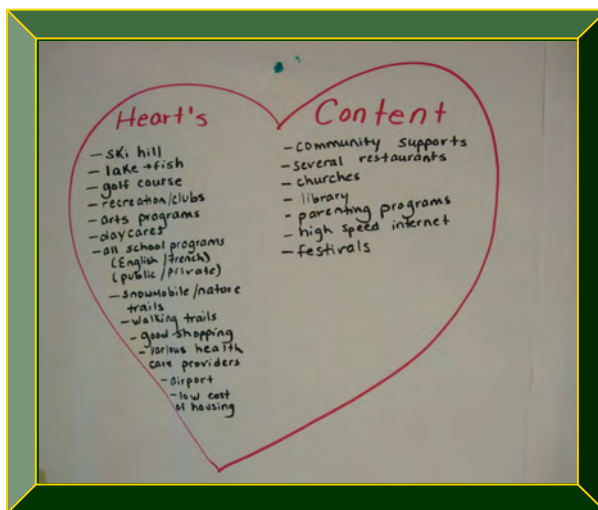 Heart's
- ski hill
- lake → fish
- golf course
- recreation/clubs
- arts programs
- daycares
- all school programs
(English/french)
(public/private)
- snowmobile/nature
trails
- walking trails
- good shopping
- various health
care providers
- airport
- low cost
of housing
Content
- community supports
- several restaurants
- churches
- library
- parenting programs
- high speed internet
- festivals